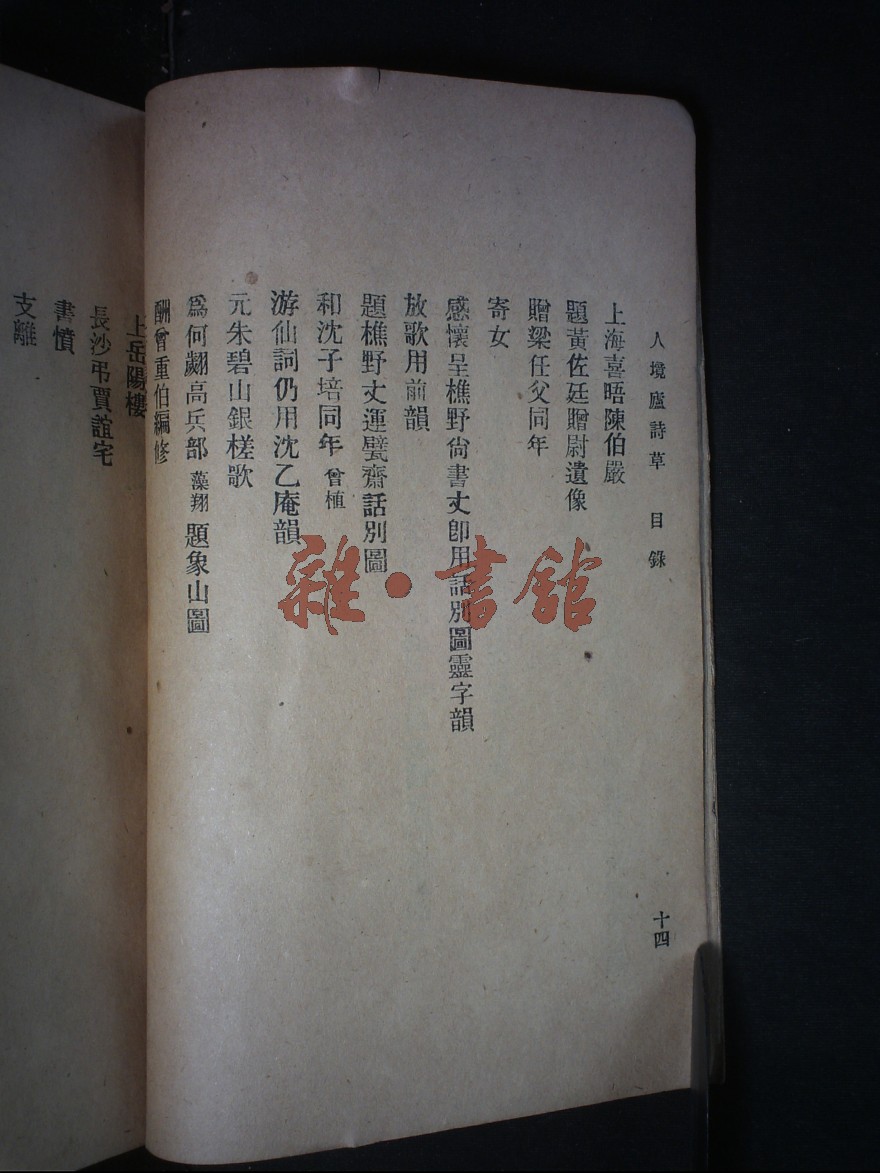 人境廬詩草　目錄
十四
上海喜晤陳伯嚴
題黃佐廷贈尉遺像
贈梁任父同年
寄女
感懷呈樵野尙書丈卽用話別圖靈字韻
放歌用前韻
題樵野丈運甓齋話別圖
和沈子培同年 曾植
游仙詞仍用沈乙庵韻
元朱碧山銀槎歌
爲何翽高兵部 藻翔 題象山圖
酬曾重伯編修
上岳陽樓
長沙弔賈誼宅
書憤
支離
雜·書館